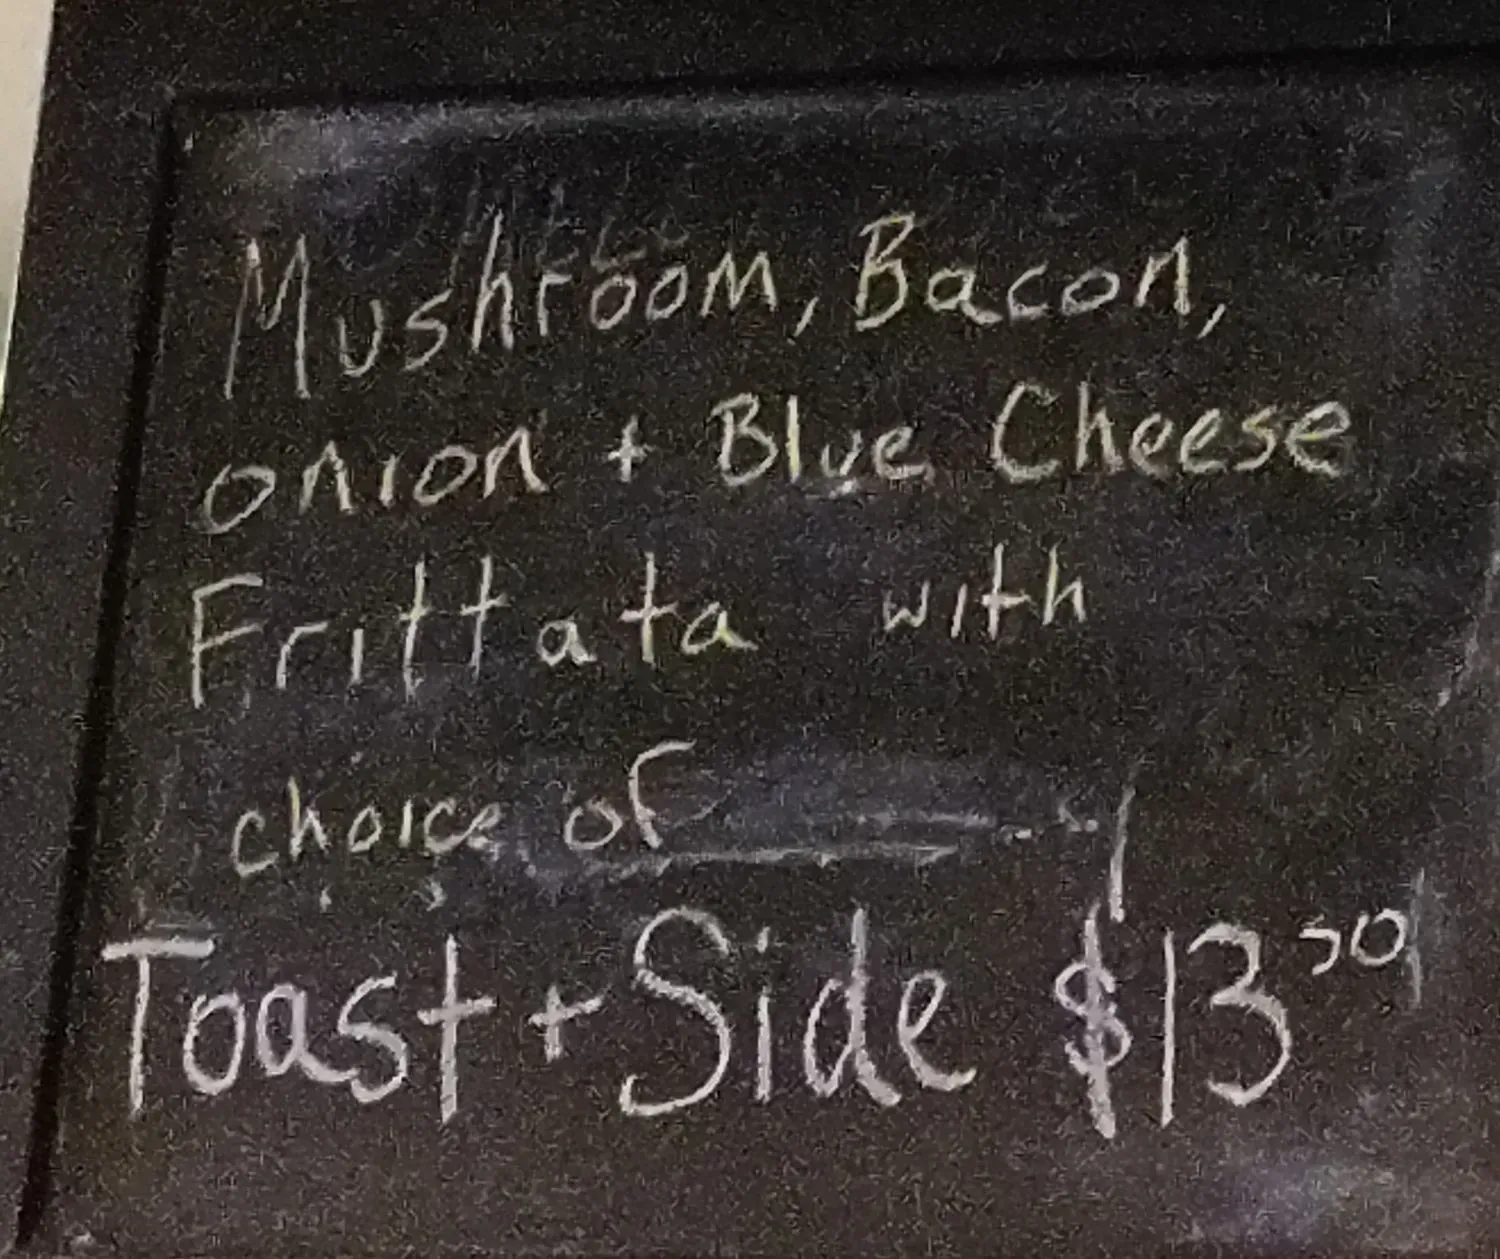 Mushroom, Bacon,
onion + Blue Cheese
Frittata with
choice of
Toast + Side $13 50